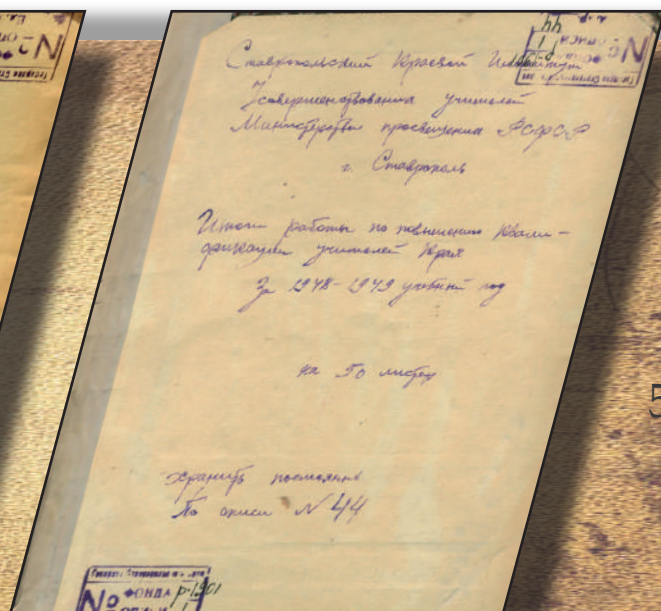 Ставропольский Краевой Институт
Усовершенствования учителей
Министерства просвещения РСФСР
г. Ставрополь
Итоги работы по повышению Квали-
фикации учителей Края
За 1948-1949 учебный год
на 50 листах
хранить постоянно
По описи № 44
№ ФОНДА р-1901